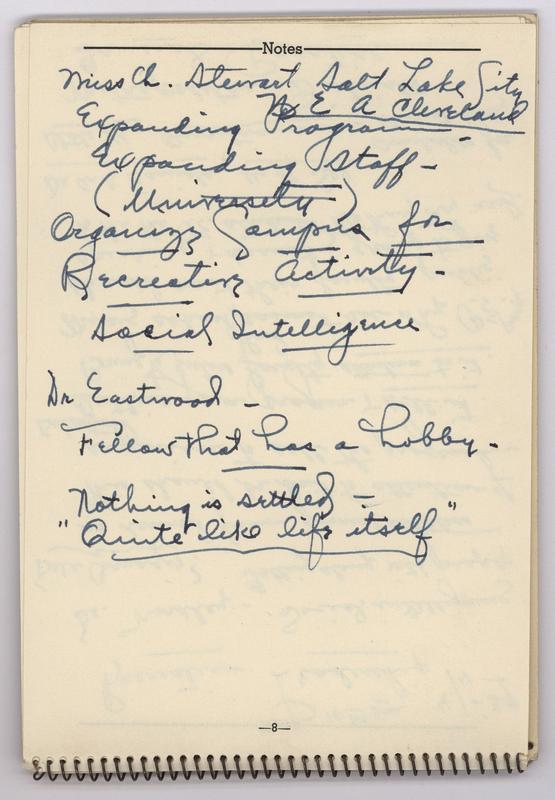 Notes
Miss Ch. Stewart Salt Lake City
N E A Cleveland
Expanding Program
Expanding Staff -
(University)
Organize Campus for
Recreative Activity -
Social Intelligence
Dr Eastwood -
Fellow that has a hobby -
Nothing is settled -
"Quite like life itself"
-8-